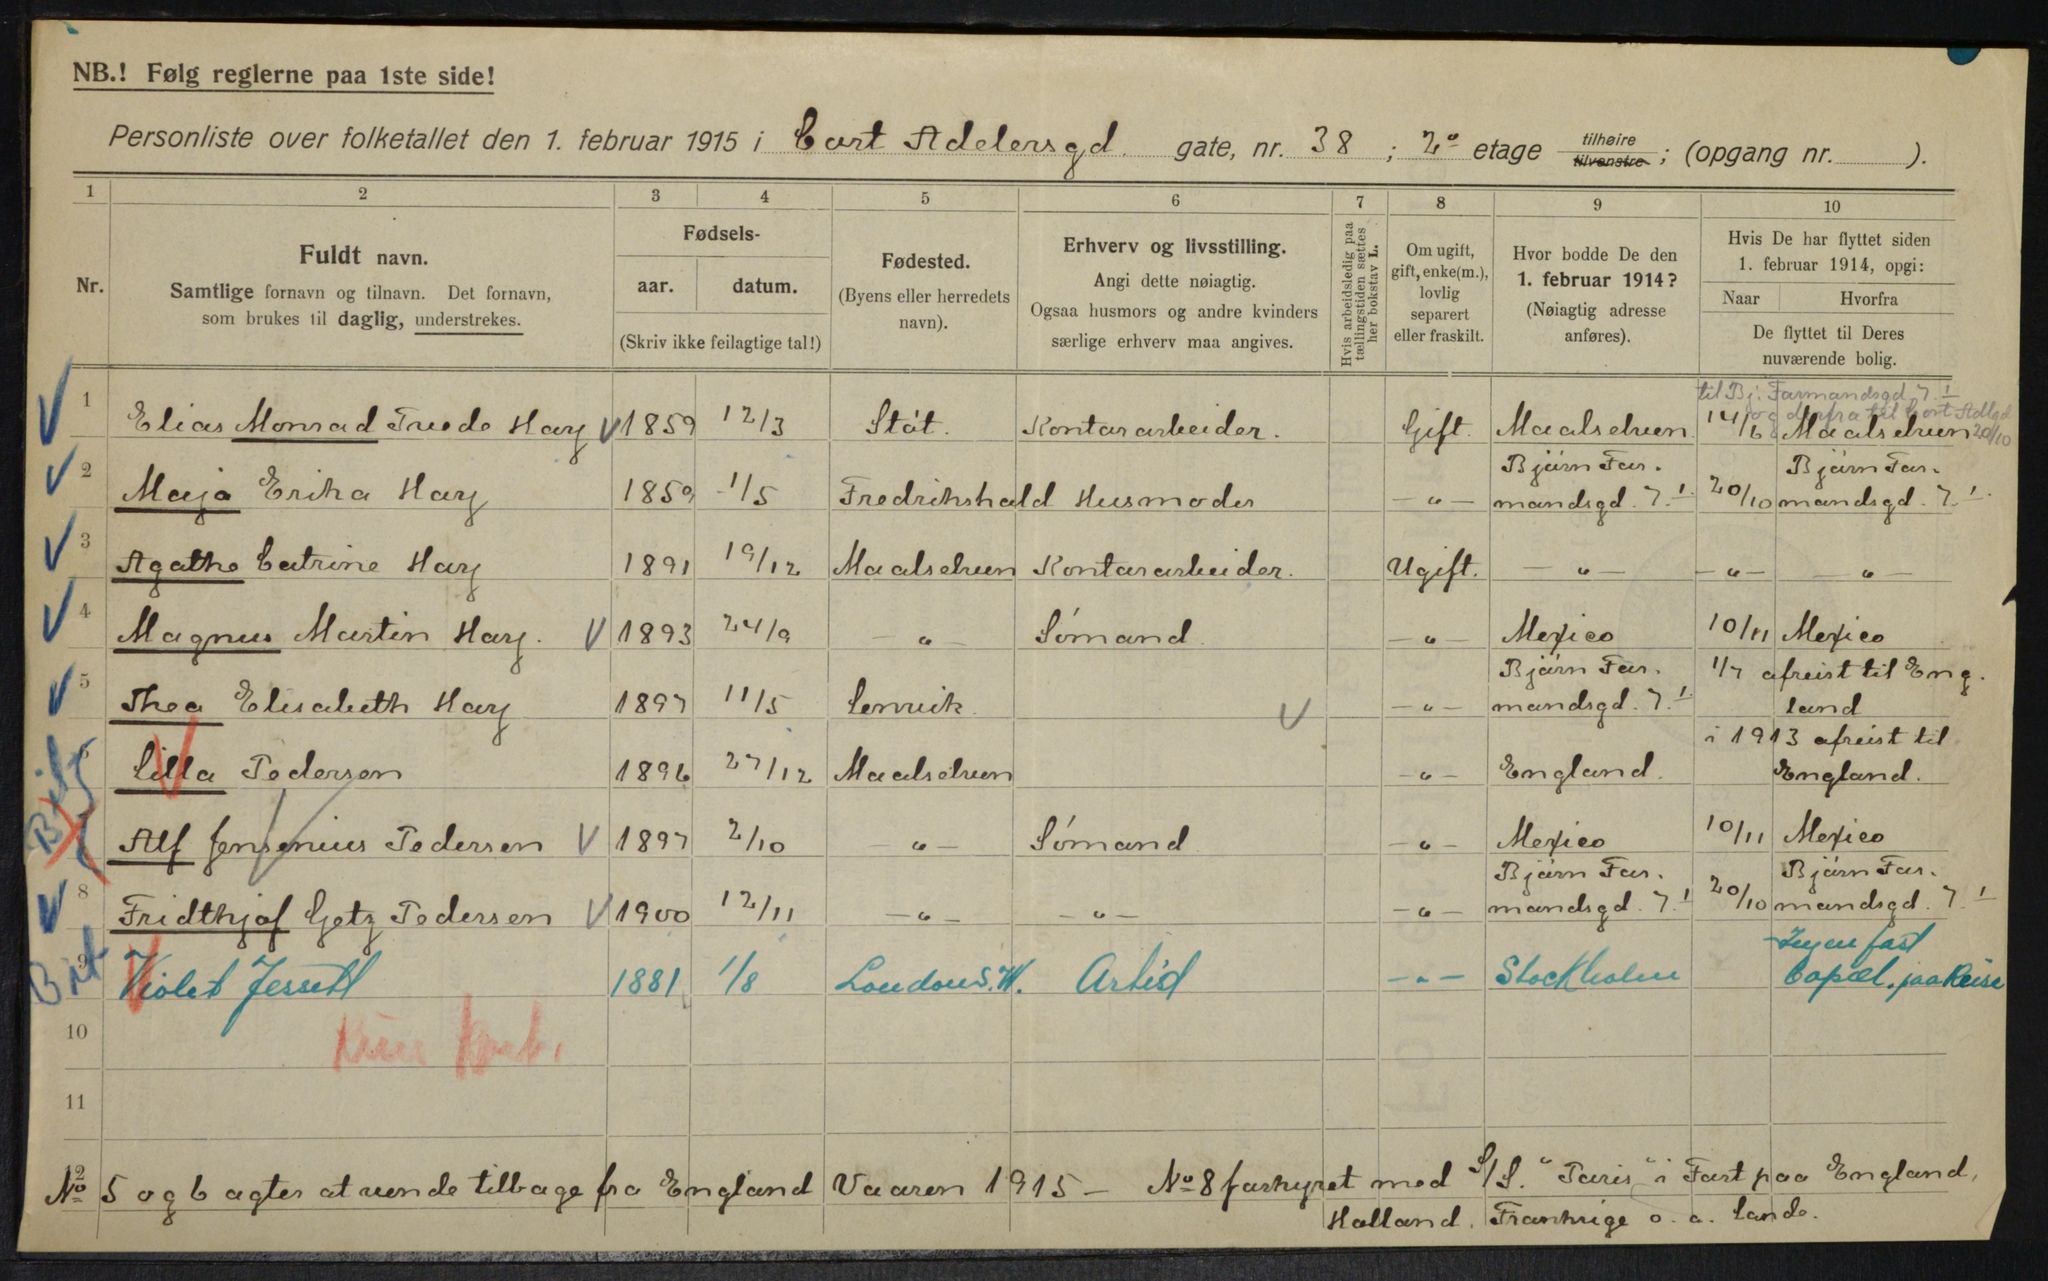 NB.! Følg reglerne paa 1ste side!
Personliste over folketallet den 1. februar 1915 i Cort Adelersgd. gate, nr. 38 ; 2º etage tilhøire tilvenstre ; (opgang nr. ).
1 2 3 4 5 6 7 8 9 10
Nr. Fuldt navn. Samtlige fornavn og tilnavn. Det fornavn, som brukes til daglig, understrekes.
Fødsels- aar. datum. (Skriv ikke feilagtige tal!)
Fødested. (Byens eller herredets navn).
Erhverv og livsstilling. Angi dette nøiagtig. Ogsaa husmors og andre kvinders særlige erhverv maa angives.
Hvis arbeidsledig paa tællingstiden sættes her bokstav L.
Om ugift, gift, enke(m.), lovlig separert eller fraskilt.
Hvor bodde De den 1. februar 1914? (Nøiagtig adresse anføres).
Hvis De har flyttet siden 1. februar 1914, opgi: Naar Hvorfra De flyttet til Deres nuværende bolig.
til Bj. Farmandsgd 7 I
og derfra til Cort Adlgd 20/10
1 Elias Monrad Trude Hay 1859 12/3 Stöt. Kontorarbeider. Gift. Maalselven. 14/6 Maalselven
2 Maja Erika Hay 1859 1/5 Fredrikshald Husmoder —"— Björn Farmandsgd. 7. I 20/10 Björn Farmandsgd. 7. I
3 Agathe Catrine Hay 1891 19/12 Maalselven Kontorarbeider. Ugift. —"— —"— —"—
4 Magnus Martin Hay. 1893 24/9 —"— Sömand. —"— Mexico 10/11 Mexico
5 Thea Elisabeth Hay 1897 11/5 Lenvik —"— Björn Farmandsgd. 7. I 1/7 afreist til England
6 Lilla Pedersen 1896 27/12 Maalselven —"— England. i 1913 afreist til England.
7 Alf Jensenius Pedersen 1897 2/10 —"— Sömand —"— Mexico 10/11 Mexico
8 Fridthjof Getz Pedersen 1900 12/11 —"— —"— —"— Björn Farmandsgd. 7. I 20/10 Björn Farmandsgd. 7. I
9 Violet Jessett 1881 1/8 London S.W. Artist —"— Stockholm Ingen fast bopæl. paa Reise
10
11
12
No 5 og 6 agter at vende tilbage fra England Vaaren 1915 — No 8 forhyret med S/S. "Paris" i Fart paa England,
Holland, Frankrige o. a. Lande.